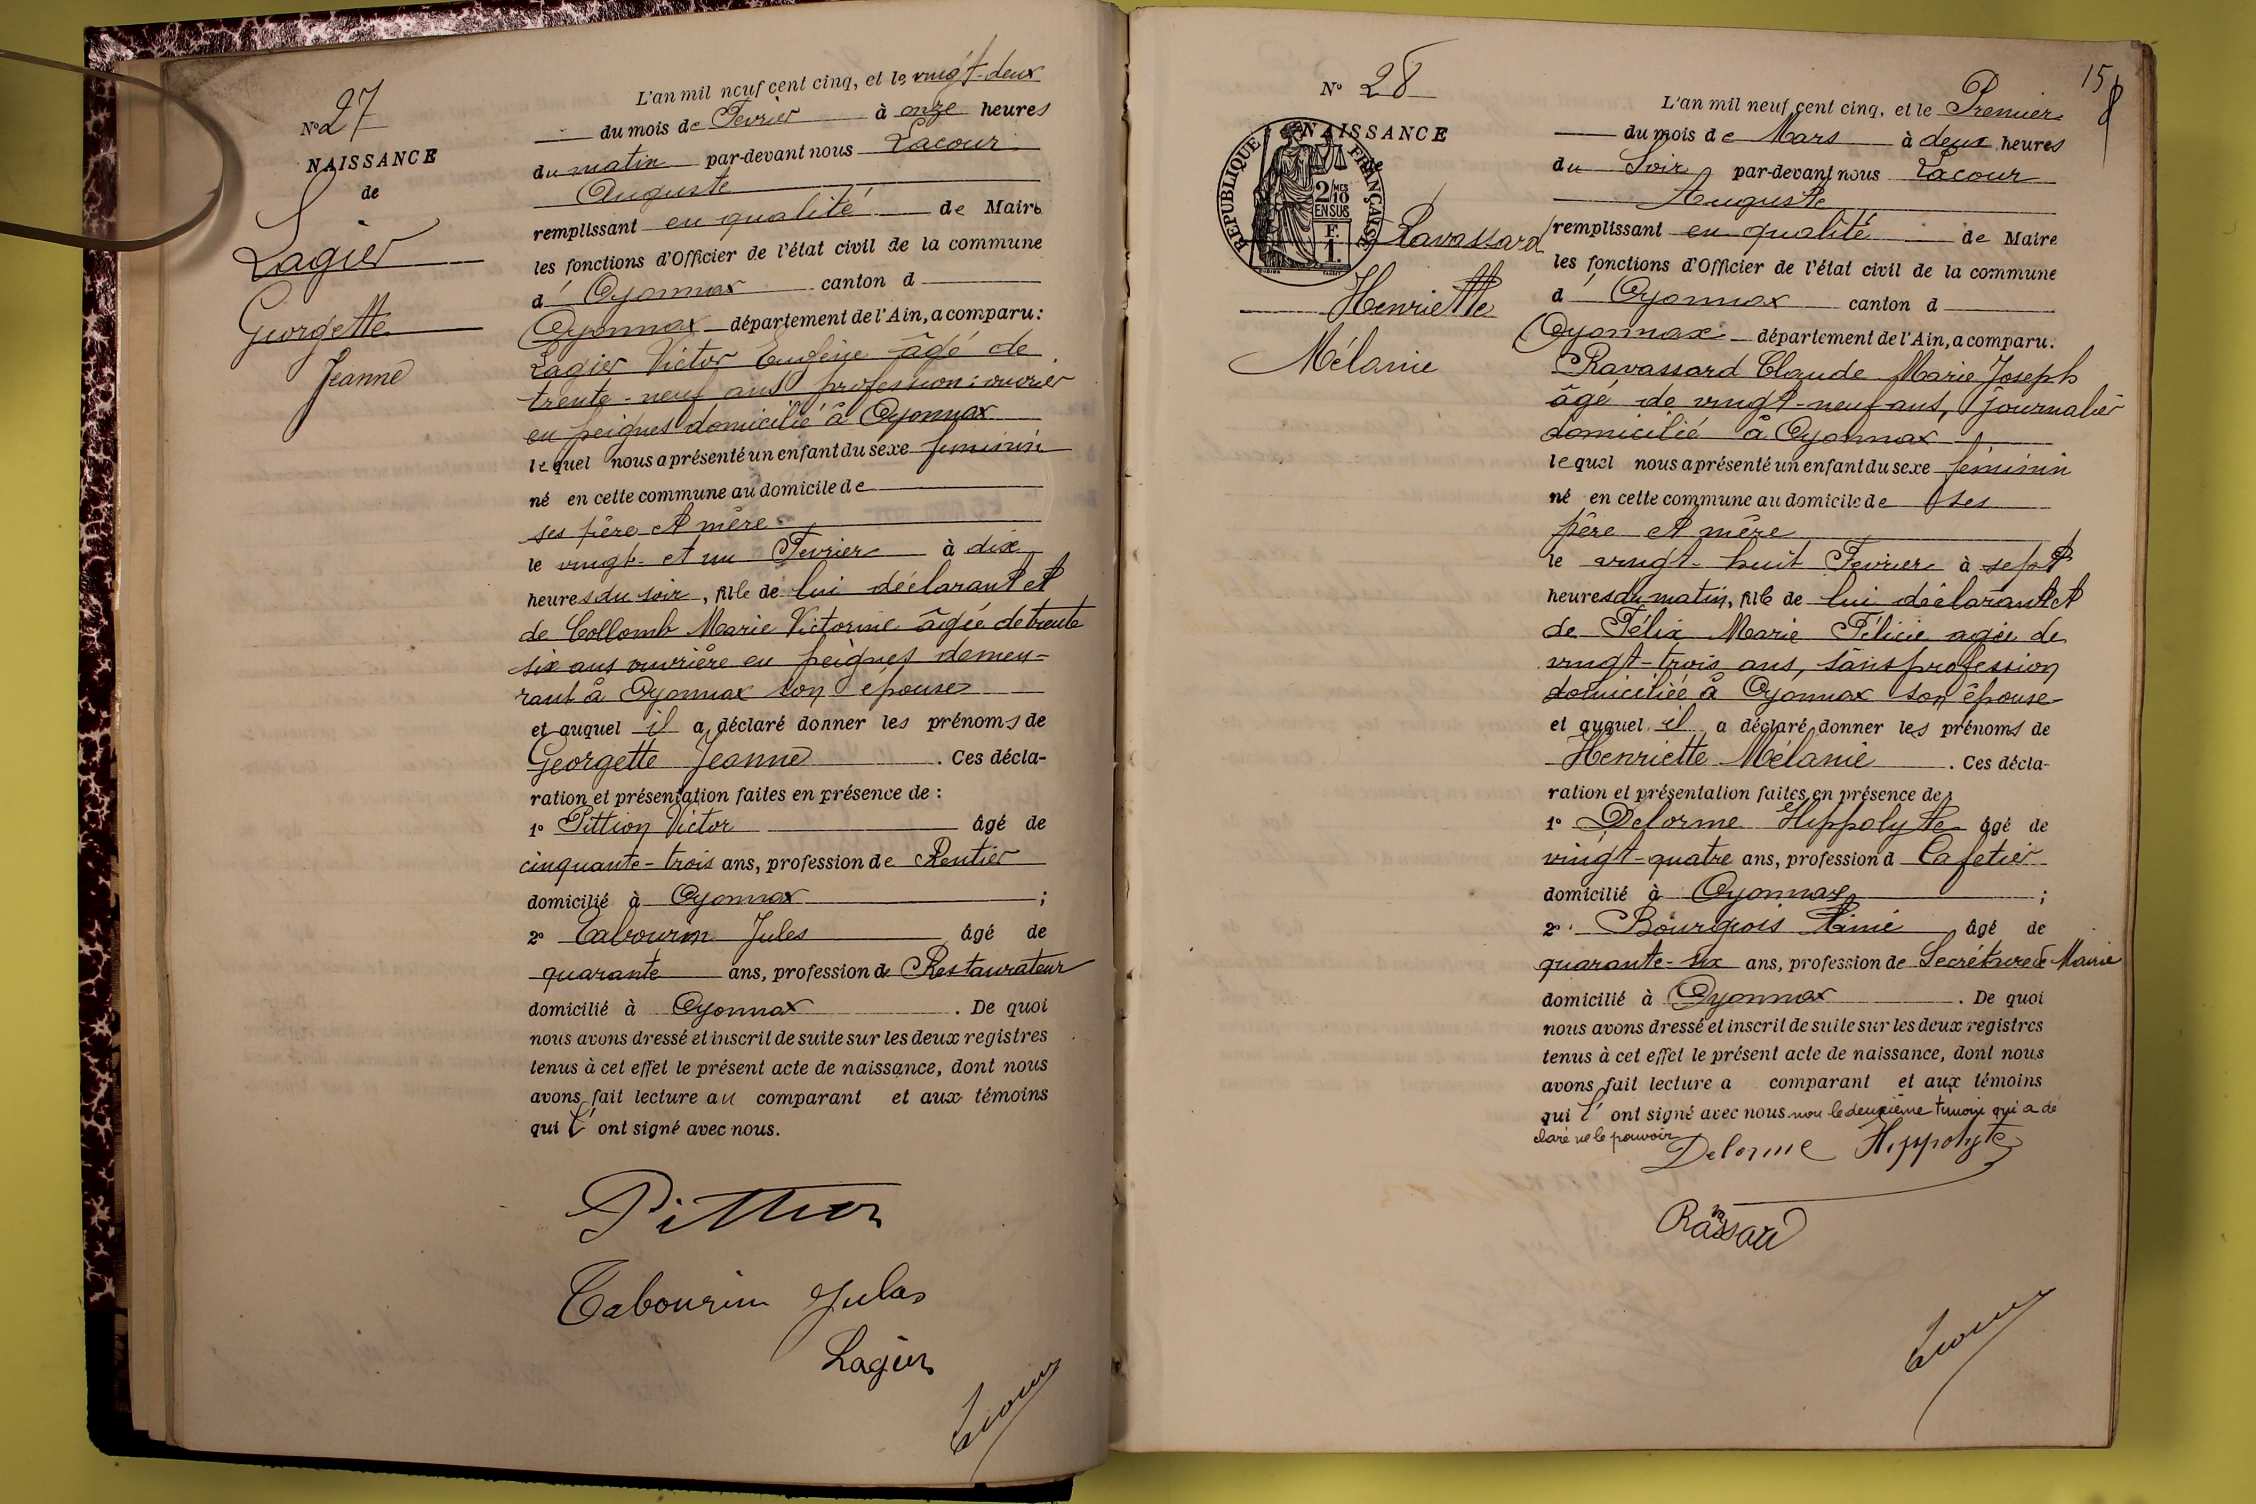 N° 27
NAISSANCE
de
Lagier
Georgette
Jeanne
L'an mil neuf cent cinq, et le vingt-deux
du mois de Fevrier à onze heures
du matin par-devant nous Lacour
Auguste
remplissant en qualité de Maire
les fonctions d'Officier de l'état civil de la commune
d' Oyonnax canton d
Oyonnax département de l'Ain, a comparu:
Lagier Victor Eugène âgé de
trente-neuf ans profession: ouvrier
en peignes domicilié à Oyonnax
lequel nous a présenté un enfant du sexe féminin
né en cette commune au domicile de
ses père et mère
le vingt-et un Fevrier à dix
heures du soir, fille de lui déclarant et
de Collomb Marie Victorine âgée de trente
six ans ouvrière en peignes demeu-
rant à Oyonnax son épouse
et auquel il a déclaré donner les prénoms de
Georgette Jeanne. Ces décla-
ration et présentation faites en présence de:
1° Pittion Victor âgé de
cinquante-trois ans, profession de Rentier
domicilié à Oyonnax;
2° Tabourin Jules âgé de
quarante ans, profession de Restaurateur
domicilié à Oyonnax. De quoi
nous avons dressé et inscrit de suite sur les deux registres
tenus à cet effet le présent acte de naissance, dont nous
avons fait lecture au comparant et aux témoins
qui l' ont signé avec nous.
Pittion
Tabourin Jules
Lagier
15
N° 28
NAISSANCE
RÉPUBLIQUE FRANÇAISE
2/10 MES
EN SUS
F.
1.
Ravassard
Henriette
Mélanie
L'an mil neuf cent cinq, et le Premier
du mois de Mars à deux heures
du Soir par-devant nous Lacour
Auguste
remplissant en qualité de Maire
les fonctions d'Officier de l'état civil de la commune
d' Oyonnax canton d
Oyonnax département de l'Ain, a comparu:
Ravassard Claude Marie Joseph
âgé de vingt-neuf ans, journalier
domicilié à Oyonnax
lequel nous a présenté un enfant du sexe féminin
né en cette commune au domicile de ses
père et mère
le vingt-huit Fevrier à sept
heures du matin, fille de lui déclarant et
de Félix Marie Félicie agée de
vingt-trois ans, sans profession
domiciliée à Oyonnax son épouse
et auquel il a déclaré donner les prénoms de
Henriette Mélanie. Ces décla-
ration et présentation faites en présence de:
1° Delorme Hippolyte âgé de
vingt-quatre ans, profession d Cafetier
domicilié à Oyonnax;
2° Bourgeois Aimé âgé de
quarante-six ans, profession de Secrétaire de Mairie
domicilié à Oyonnax. De quoi
nous avons dressé et inscrit de suite sur les deux registres
tenus à cet effet le présent acte de naissance, dont nous
avons fait lecture a comparant et aux témoins
qui l' ont signé avec nous non le deuxième témoin qui a dé
claré ne le pouvoir
Delorme Hippolyte